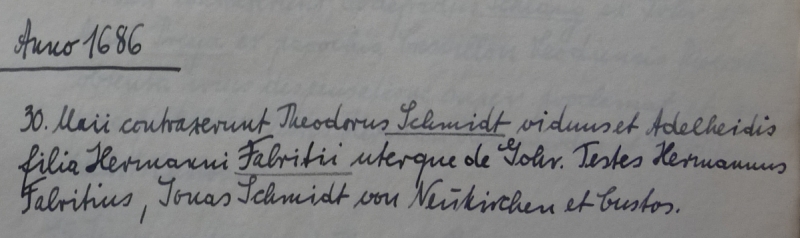 Anno 1686
30. Maii contraxerunt Theodorus Schmidt viduus et Adelheidis
filia Hermanni Fabritii uterque de Gohr. Testes Hermannus
Fabritius, Jonas Schmidt von Neükirchen et Custos.